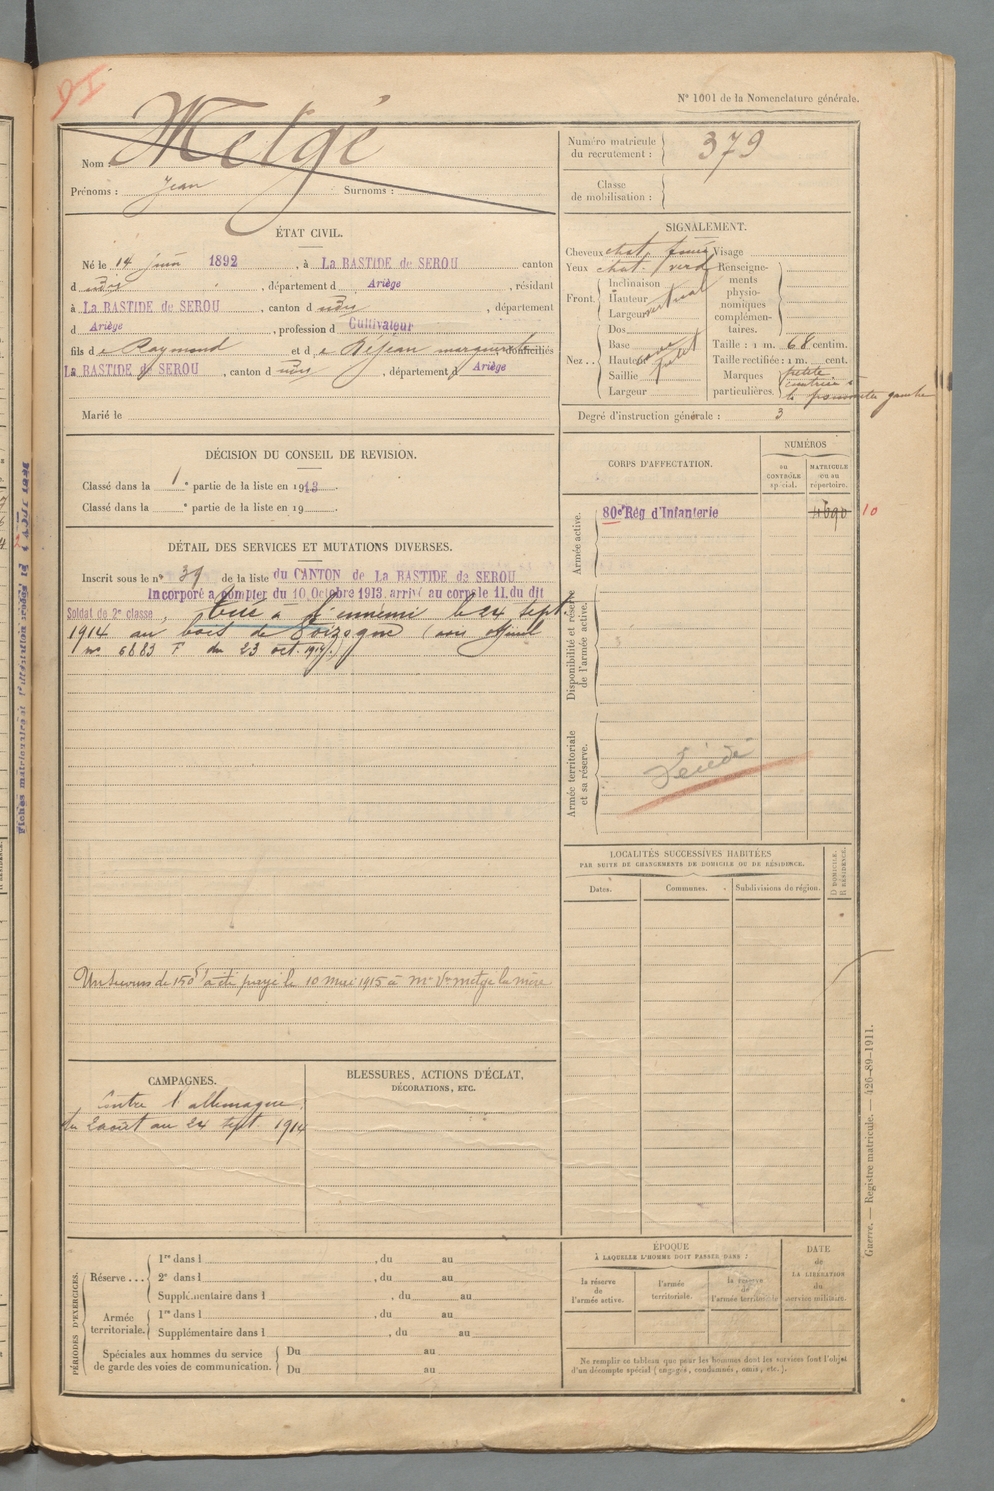 N° 1001 de la Nomenclature générale.
Nom : Metgé
Prénoms : Jean Surnoms :
Numéro matricule du recrutement : 379
Classe de mobilisation :
ÉTAT CIVIL.
Né le 14 juin 1892, à La BASTIDE de SEROU canton
d udit, département d Ariège, résidant
à La BASTIDE de SEROU, canton d udit, département
d Ariège, profession d Cultivateur
fils de Raymond et de Béjean marguerite, domiciliés
La BASTIDE de SEROU, canton d udit, département d Ariège
Marié le
SIGNALEMENT.
Cheveux chat. foncé Visage
Yeux chat. verd
Renseignements physionomiques complémentaires.
Front. Inclinaison vertical
Hauteur
Largeur
Nez... Dos
Base cave
Hauteur petit
Saillie
Largeur
Taille : 1 m. 68 centim.
Taille rectifiée : 1 m. cent.
Marques particulières. petite
cicatrice à
la pommette gauche
Degré d'instruction générale : 3
DÉCISION DU CONSEIL DE REVISION.
Classé dans la 1e partie de la liste en 1913.
Classé dans la e partie de la liste en 19
DÉTAIL DES SERVICES ET MUTATIONS DIVERSES.
Inscrit sous le n° 31 de la liste du CANTON de La BASTIDE de SEROU
Incorporé a compter du 10 Octobre 1913. arrivé au corps le 11, du dit
Soldat de 2e classe, tué à l'ennemi le 24 sept.
1914 au bois de (avis officiel
n° 6883 F du 23 oct. 1914.)
Un secours de 150f a été payé le 10 mai 1915 à Me Vve metge la mère
CORPS D'AFFECTATION.
NUMÉROS
au CONTRÔLE spécial.
MATRICULE ou au répertoire.
Armée active.
80e Rég d'Infanterie 4690 10
Disponibilité et réserve de l'armée active.
Armée territoriale et sa réserve.
Décédé
LOCALITÉS SUCCESSIVES HABITÉES
PAR SUITE DE CHANGEMENTS DE DOMICILE OU DE RÉSIDENCE.
Dates. Communes. Subdivisions de région.
D DOMICILE.
R RÉSIDENCE.
CAMPAGNES.
Contre l'allemagne,
du 2 août au 24 sept 1914
BLESSURES, ACTIONS D'ÉCLAT,
DÉCORATIONS, ETC.
PÉRIODES D'EXERCICES.
Réserve... 1re dans l , du au
2e dans l , du au
Supplémentaire dans l , du au
Armée territoriale. 1re dans l , du au
Supplémentaire dans l , du au
Spéciales aux hommes du service de garde des voies de communication. Du au
Du au
ÉPOQUE
À LAQUELLE L'HOMME DOIT PASSER DANS :
la réserve de l'armée active.
l'armée territoriale.
la réserve de l'armée territoriale
DATE
de
LA LIBÉRATION
du
service militaire.
Ne remplir ce tableau que pour les hommes dont les services font l'objet
d'un décompte spécial (engagés, condamnés, omis, etc.).
Guerre. — Registre matricule. — 426-89-1911.